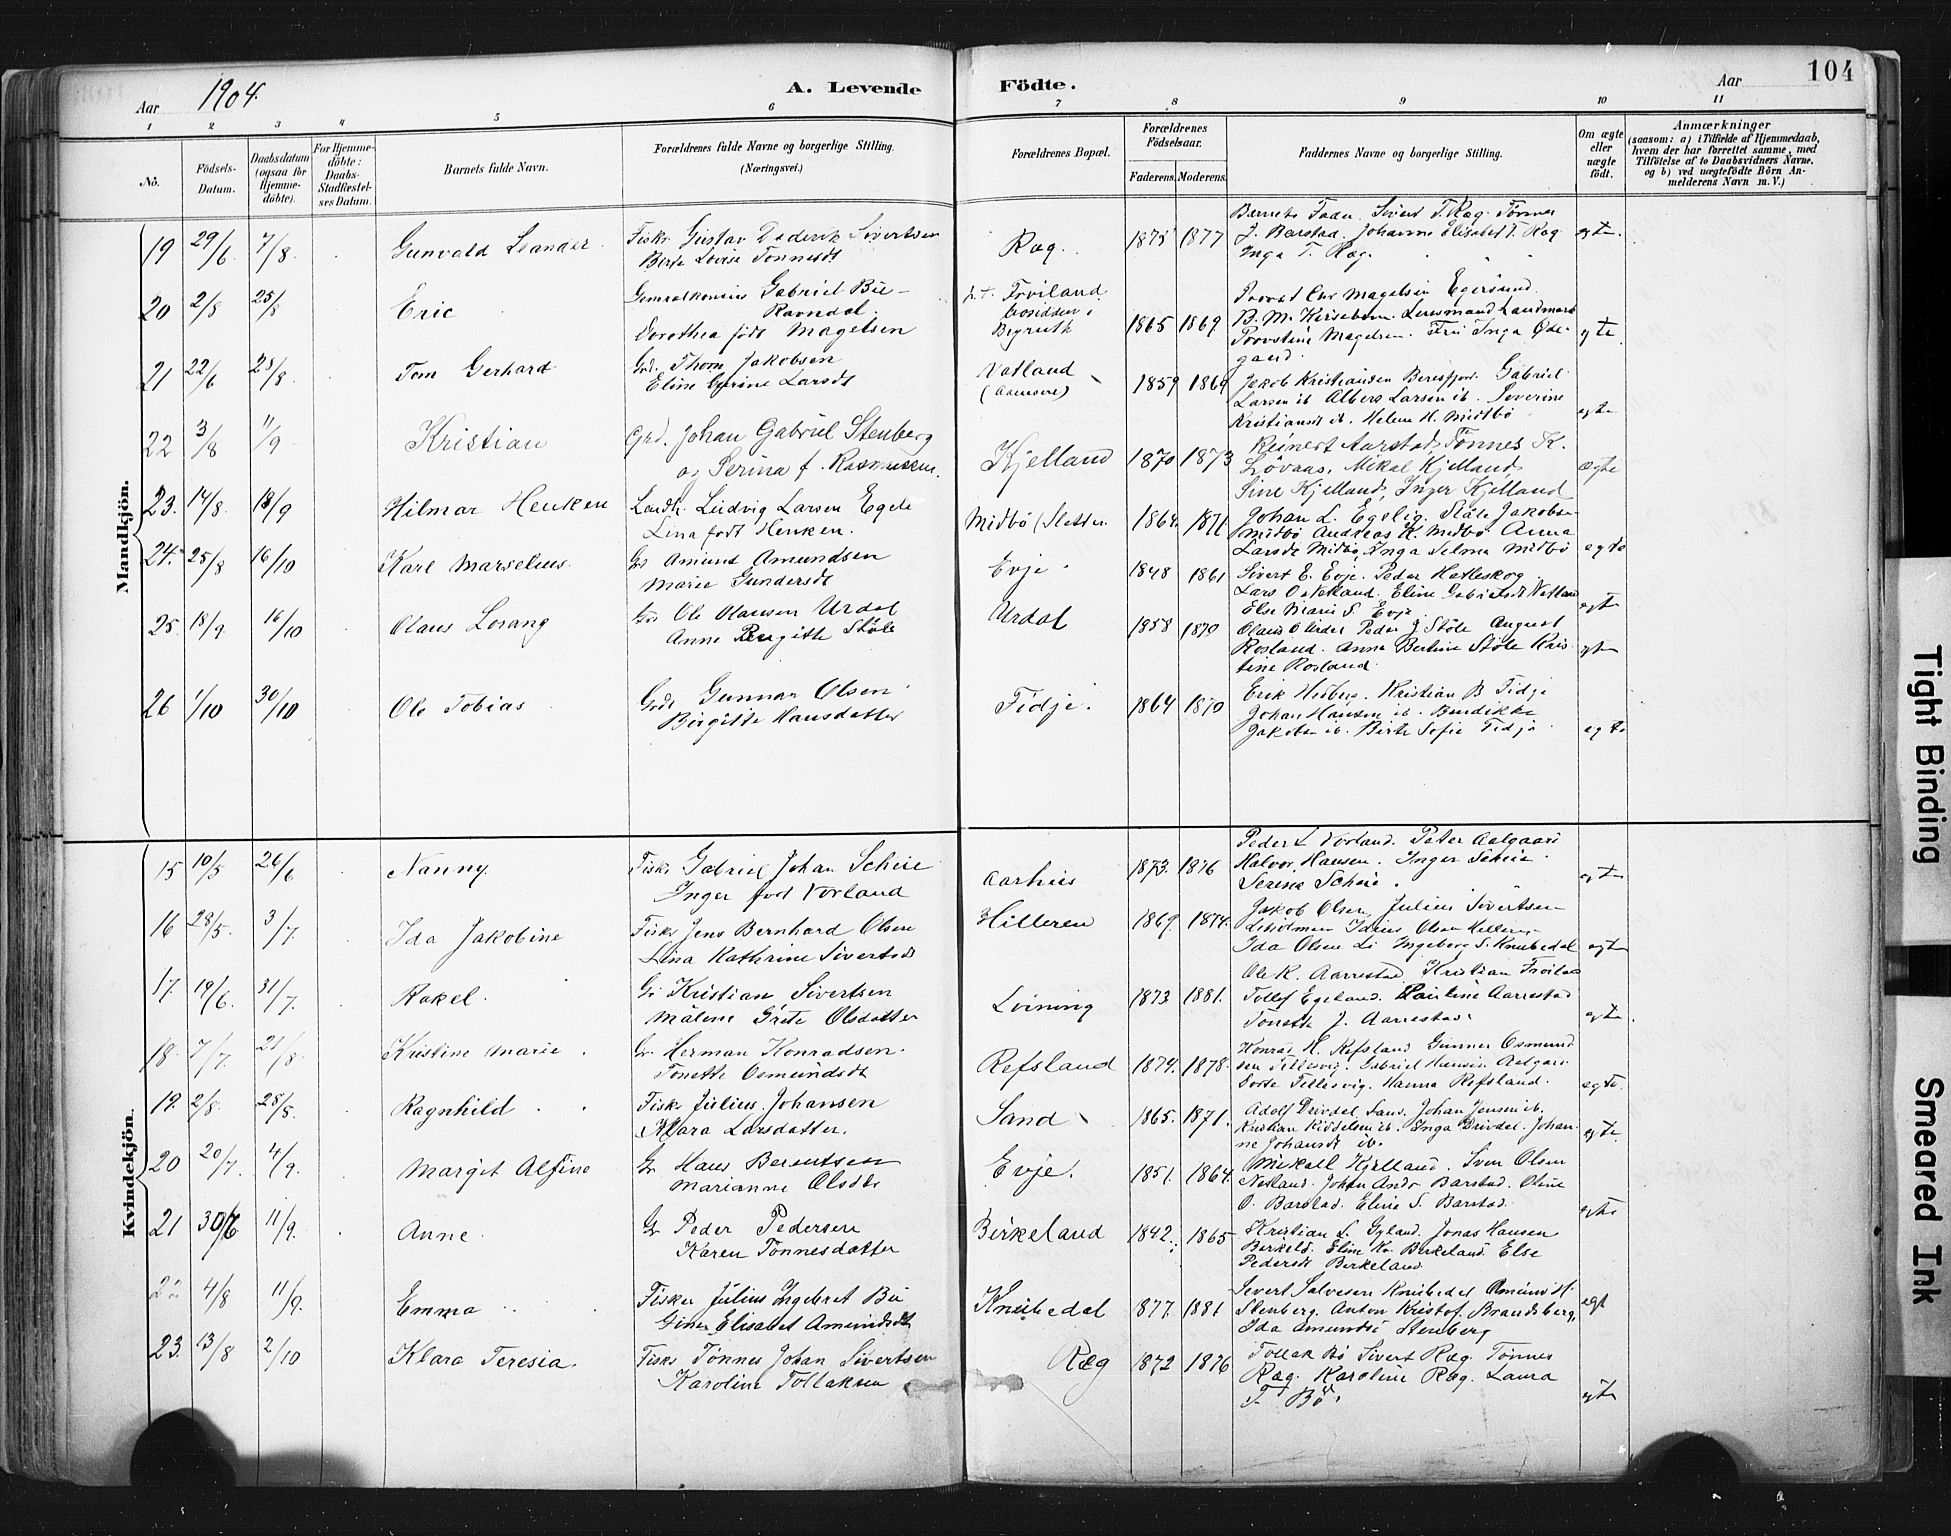 104
Aar 1904. A. Levende Födte. Aar
1 2 3 4 5 6 7 8 9 10 11
No.
Födsels-
Datum.
Daabsdatum
(ogsaa för
Hjemme-
döbte).
For Hjemme-
döbte:
Daabs-
Stadfæstel-
ses Datum.
Barnets fulde Navn.
Forældrenes fulde Navne og borgerlige Stilling.
(Næringsvei.)
Forældrenes Bopæl.
Forældrenes
Födselsaar.
Faderens. Moderens.
Faddernes Navne og borgerlige Stilling.
Om ægte
eller
uægte
födt.
Anmærkninger
(saasom: a) i Tilfælde af Hjemmedaab,
hvem der har forrettet samme, med
Tilföielse af to Daabsvidners Navne.
og b) ved uægtefödte Börn An-
melderens Navn m. V.)
Mandkjön.
19 29/6 7/8 Gunvald Leander
Fisker Gustav Dederik Sivertsen
Berte Lovise Tønnesdt
Ræg. 1875 1877
Barnets Fader. Sivert T. Ræg. Tønnes
J. Barstad. Johanne Elisabet T. Ræg
Inga T. Ræg.
egte.
20 2/8 25/8 Eric
Generalkonsul Gabriel Bie
Ravndal.
Dorothea født Magelsen
p.t. Frøiland
bosidden i
Beyruth
1865 1869
Provst Chr Magelsen Egersund.
B. M. Kirsebom. Lensmand Landmark
Provstine Magelsen. Fru Inga Øde-
gaard.
egte.
21 22/6 28/8 Tom Gerhard
Grd. Thom Jakobsen
Eline Gurine Larsdt
Vatland
1859 1864
Jakob Kristiansen Beresfjord. Gabriel
Larsen ib Albert Larsen ib. Severine
Kristiansdt ib. Helene H. Midtbø
egte
22 3/8 11/9 Kristian
Grd. Johan Gabriel Stenberg
og Serina f. Rasmussen.
Kjelland 1870 1873
Reinert Aarstad, Tønnes K.
Løvaas, Mikal Kjelland,
Sine Kjelland, Inger Kjelland
ægte
23. 14/8 18/9 Hilmar Henken
Landh. Ludvig Larsen Egele
Lina født Henken.
Midbø 1864. 1871.
Johan L. Egelig. Ståle Jakobsen
Midbø Andreas K. Midbø Anna
Larsdt Midbø, Inga Selma Midbø
egte
24. 25/8 16/10 Karl Marselius.
Gr Amund Amundsen
Marie Gundersdt
Evje 1848 1861
Sivert E. Evje. Peder Hatleskog
Lars O Nætland. Eline Gabrielsdt Nætland
Else Marie S. Evje.
egte
25. 18/9. 16/10 Olaus Lorang
Grd Ole Olausen Urdal
Anne Birgitte Ståle
Urdal 1858 1870
Olaus O Urdal Peder J Ståle August
Rosland. Anna Bertine Ståle Kris-
tine Rosland.
egte
26 1/10 30/10 Ole Tobias
Grd. Gunnar Olsen
Birgitte Hansdatter
Tidje. 1864 1870
Erik Hesberg. Kristian B Tidje
Johan Hansen ib. Bendikke
Jakobsen ib. Berte Sofie Tidje
egte
Kvindekjön.
15 10/5 26/6 Nanny.
Fisker Gabriel Johan Scheie
Inger født Vorland
Aarhus 1873. 1876
Peder L Vorland. Peter Aalgaard
Halvor Hansen. Inger Scheie.
Serina Scheie.
egte
16 28/5. 3/7. Ida Jakobine
Fisker Jens Bernhard Olsen
Lina Kathrine Sivertsdt
Hilleren 1869. 1874.
Jakob Olsen, Julius Sivertsen
Idius Olsen Hilleren
Ida Olsen Li Ingeborg S. Knubedal
egte
17. 19/6. 31/7. Rakel.
Gr Kristian Sivertsen
Målene Grete Olsdatter
Lvining 1873 1881.
Ole K. Aarrestad Kristian Frøiland
Tollef Egeland. Pauline Aarrestad
Tonette J. Aarrestad.
egte.
18. 7/7. 21/8. Kristine Marie.
Gr. Herman Konradsen.
Tonette Osmundsdt
Refsland 1874. 1878.
Konrad H. Refsland Gunner Osmund
sen Tellesvig. Gabriel Hansen Aalgaard
Dorte Tellesvig. Hanna Refsland.
egte.
19. 2/8. 28/8. Ragnhild
Fisker Julius Johansen
Klara Larsdatter.
Sand 1865. 1871.
Adolf Drivdal, Sand. Johan Jensen ib.
Kristian Kiddelsen ib. Inga Drivdal. Johan-
ne Johansdt ib.
egte.
20 20/7. 4/9. Margit Alfine
Gr Hans Berentsen
Marianne Olsdtr
Evje. 1851. 1864.
Mikall Kjelland. Sven Olsen
Nesland. Johan Andr Barstad. Oline
O. Barstad. Eline S. Barstad.
egte
21 30/6 11/9. Anne.
Gr Peder Pedersen
Karen Tønnesdatter
Birkeland 1842. 1865
Kristian L. Gyland. Jonas Hansen
Birkeld. Eline Kr. Birkeland Else
Pedersdt Birkeland
22 4/8 11/9. Emma
Fisker Julius Ingebret Bø
Gine Elisabet Amundsdt
Knubedal 1877. 1881
Severt Salvesen Knubedal Amund H.
Stenberg. Anton Kristof. Brandsberg,
Ida Amundsd Stenberg
egt
23. 13/8 2/10 Klara Teresia.
Fisker Tønnes Johan Sivertsen
Karoline Tollaksen
Ræg 1872 1876
Tollak Bø Sivert Ræg. Tønnes
Ræg. Karoline Ræg. Laura
T. Bø.
egte
Tight Binding
Smeared Ink